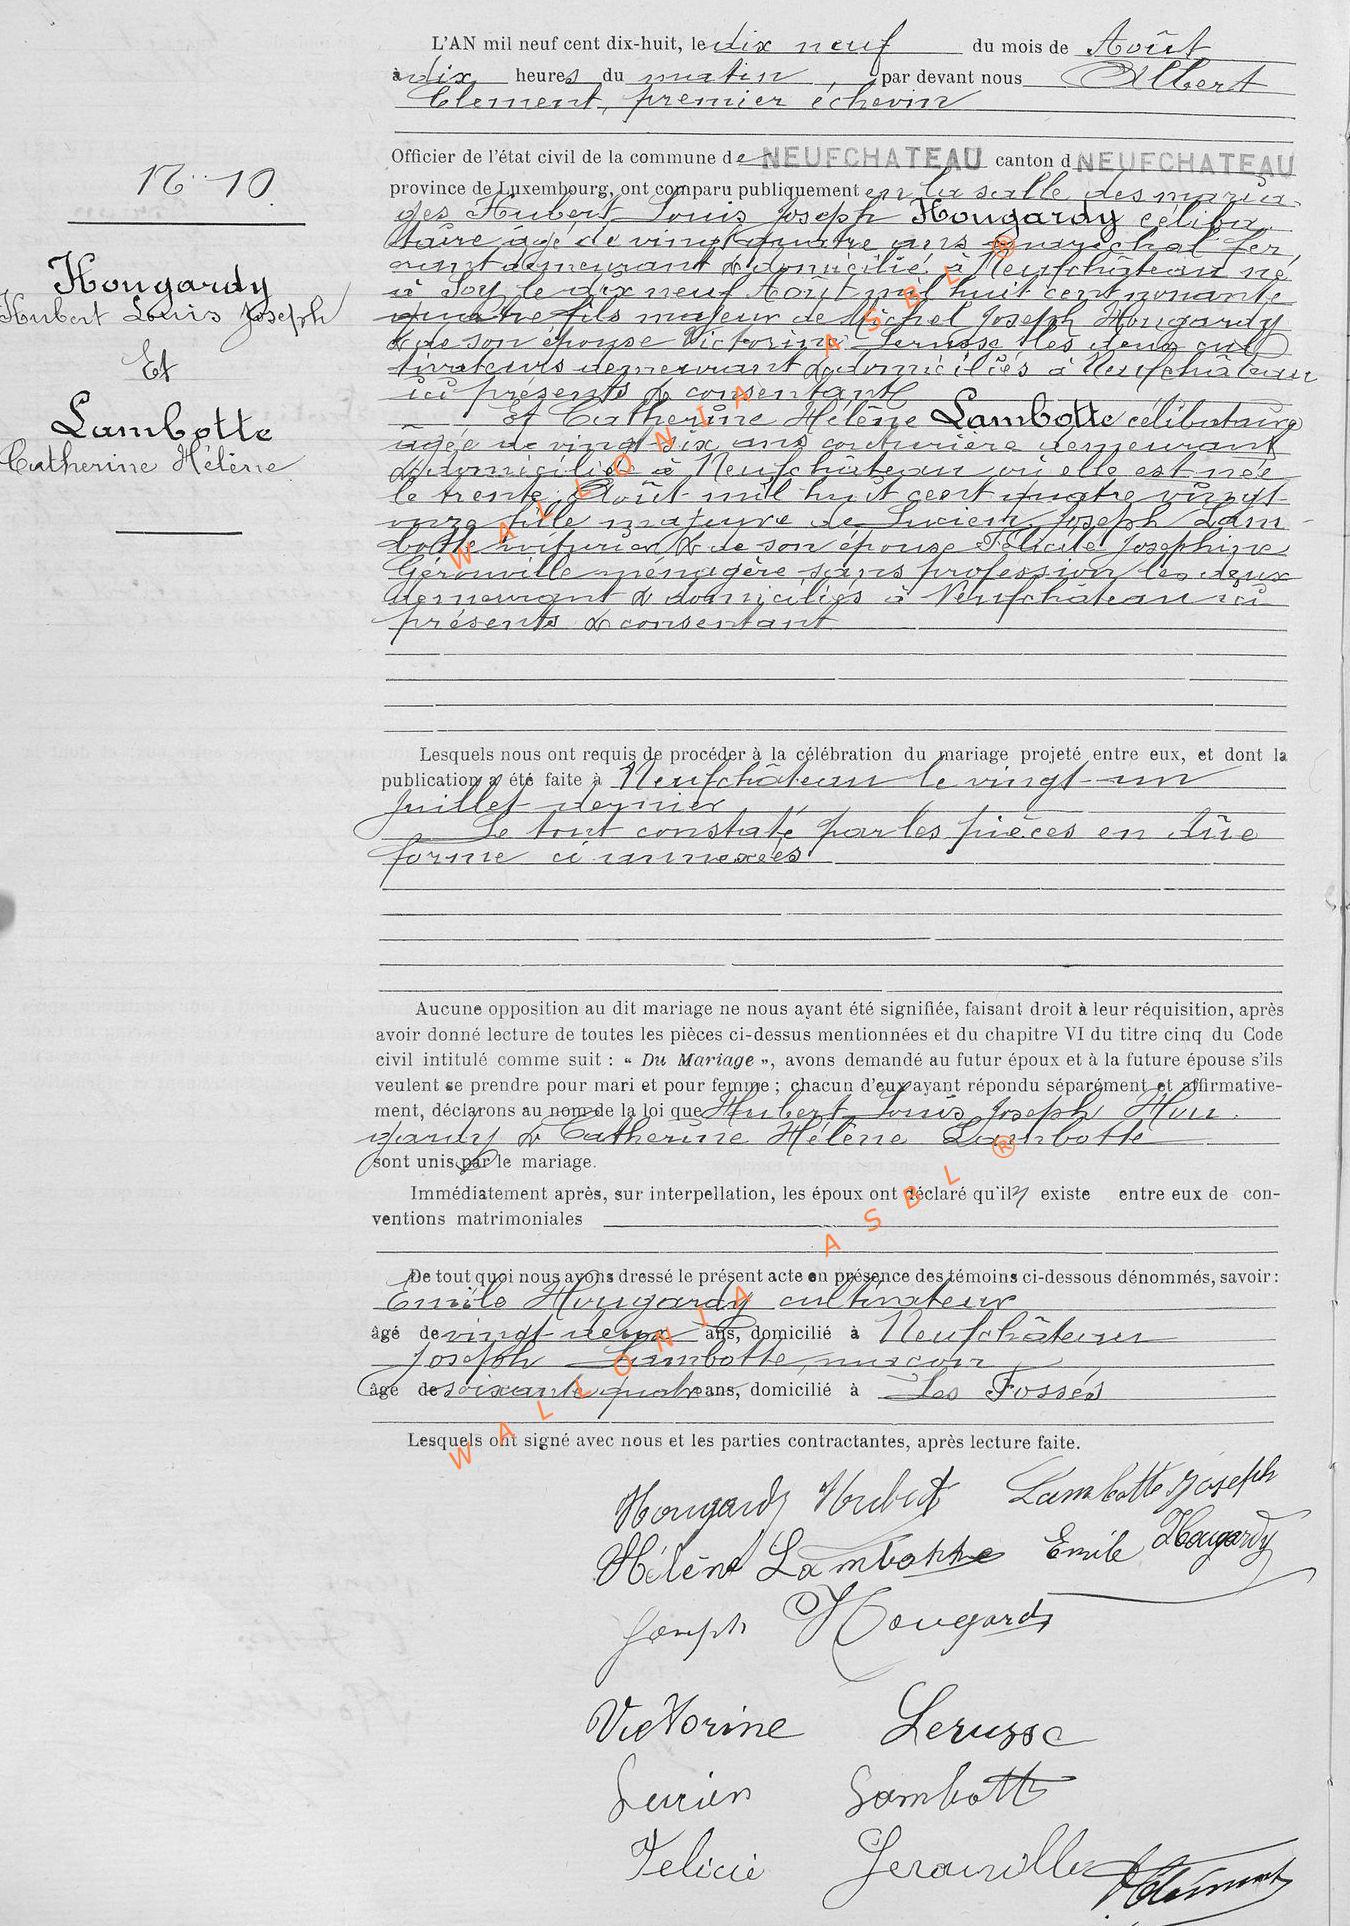 L'AN mil neuf cent dix-huit, le dix neuf du mois de Août
à dix heures du matin, par devant nous Albert
Clement, premier échevin
Officier de l'état civil de la commune de NEUFCHATEAU canton d NEUFCHATEAU
province de Luxembourg, ont comparu publiquement en la salle des maria-
ges Hubert Louis Joseph Hougardy céliba
taire âgé de vingt quatre ans maréchal fer
rant demeurant & domicilié à Neufchâteau né
à Soy le dix neuf Août mil huit cent nonante
quatre fils majeur de Michel Joseph Hougardy
& de son épouse Victorine Lerusse les deux cul
tivateurs demeurant & domiciliés à Neufchâteau
ici présents & consentant
Et Catherine Hélène Lambotte célibataire
âgée de vingt-six ans couturière demeurant
& domiciliée à Neufchâteau où elle est née
le trente Août mil huit cent quatre vingt
onze fille majeure de Lucien Joseph Lam-
botte voiturier & de son épouse Félicité Joséphine
Gérouville ménagère sans profession les deux
demeurant & domiciliés à Neufchâteau ici
présents & consentant
17.. 10.
Hougardy
Hubert Louis Joseph
Et
Lambotte
Catherine Hélène
Lesquels nous ont requis de procéder à la célébration du mariage projeté entre eux, et dont la
publication a été faite à Neufchâteau le vingt-un
Juillet dernier
Le tout constaté par les pièces en dûe
forme ci annexées
Aucune opposition au dit mariage ne nous ayant été signifiée, faisant droit à leur réquisition, après
avoir donné lecture de toutes les pièces ci-dessus mentionnées et du chapitre VI du titre cinq du Code
civil intitulé comme suit : « Du Mariage », avons demandé au futur époux et à la future épouse s'ils
veulent se prendre pour mari et pour femme ; chacun d'eux ayant répondu séparément et affirmative-
ment, déclarons au nom de la loi que Hubert Louis Joseph Hou
gardy & Catherine Hélène Lambotte
sont unis par le mariage.
Immédiatement après, sur interpellation, les époux ont déclaré qu'il n existe entre eux de con-
ventions matrimoniales
De tout quoi nous avons dressé le présent acte en présence des témoins ci-dessous dénommés, savoir :
Emile Hougardy cultivateur
âgé de vingt-deux ans, domicilié à Neufchâteau
Joseph Lambotte, maçon
âgé de soixante quatre ans, domicilié à Les Fossés
Lesquels ont signé avec nous et les parties contractantes, après lecture faite.
Hougardy Hubert Lambotte Joseph
Hélène Lambotte Emile Hougardy
Joseph Hougardy
Victorine Lerusse
Lucien Lambotte
Felicie Gerouville A Clément
WALLONIA ASBL ®
WALLONIA ASBL ®